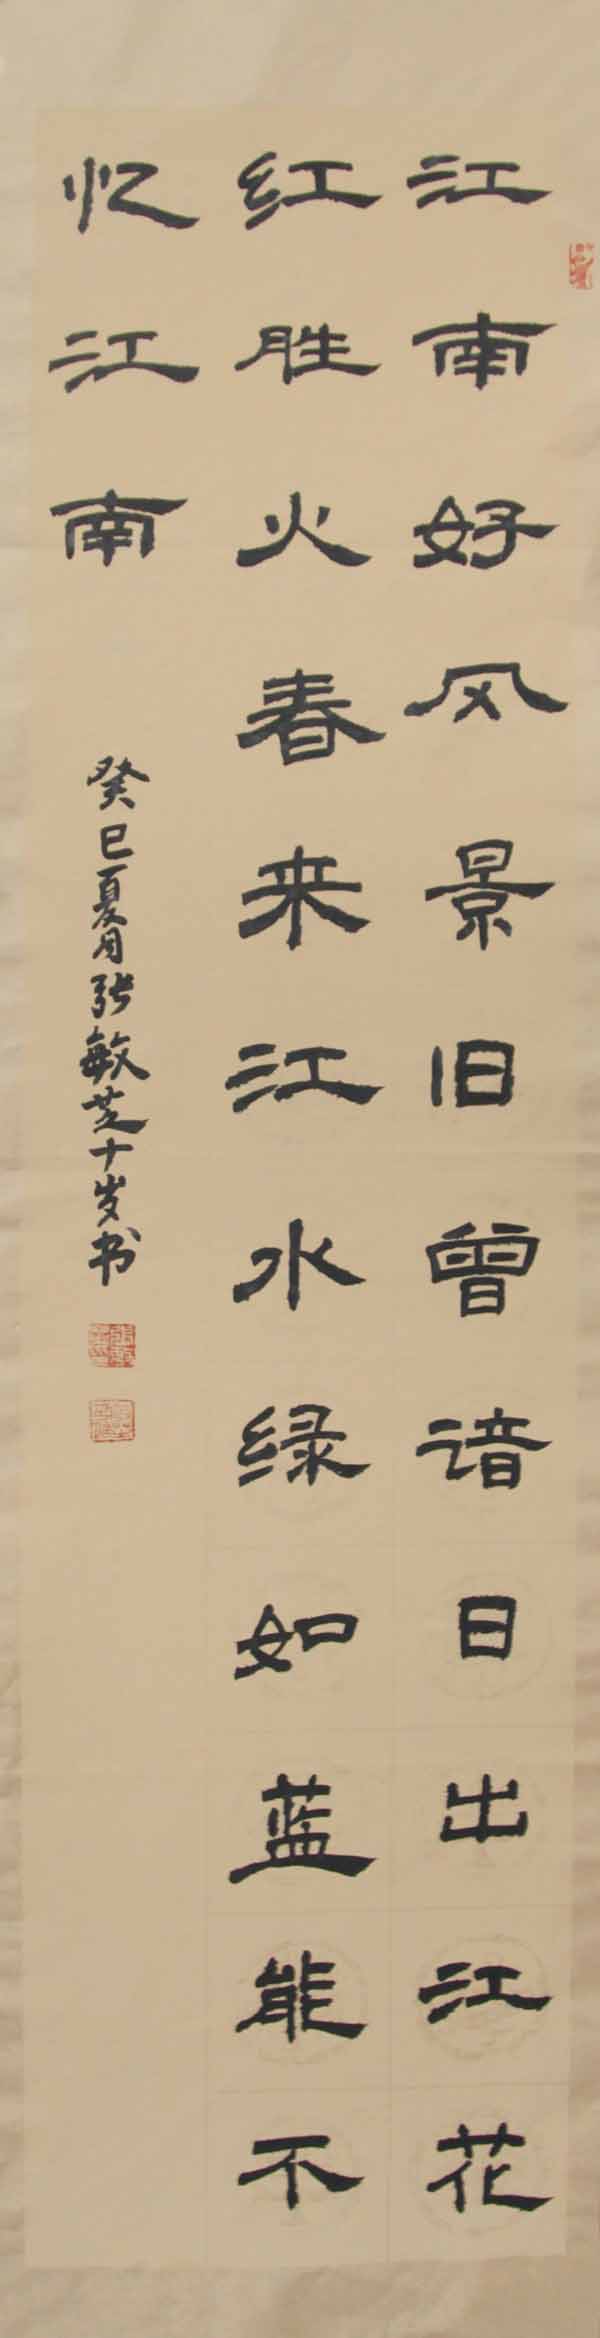 江南好风景旧曾谙日出江花
红胜火春来江水绿如蓝能不
忆江南
癸巳夏月张敏芝十岁书